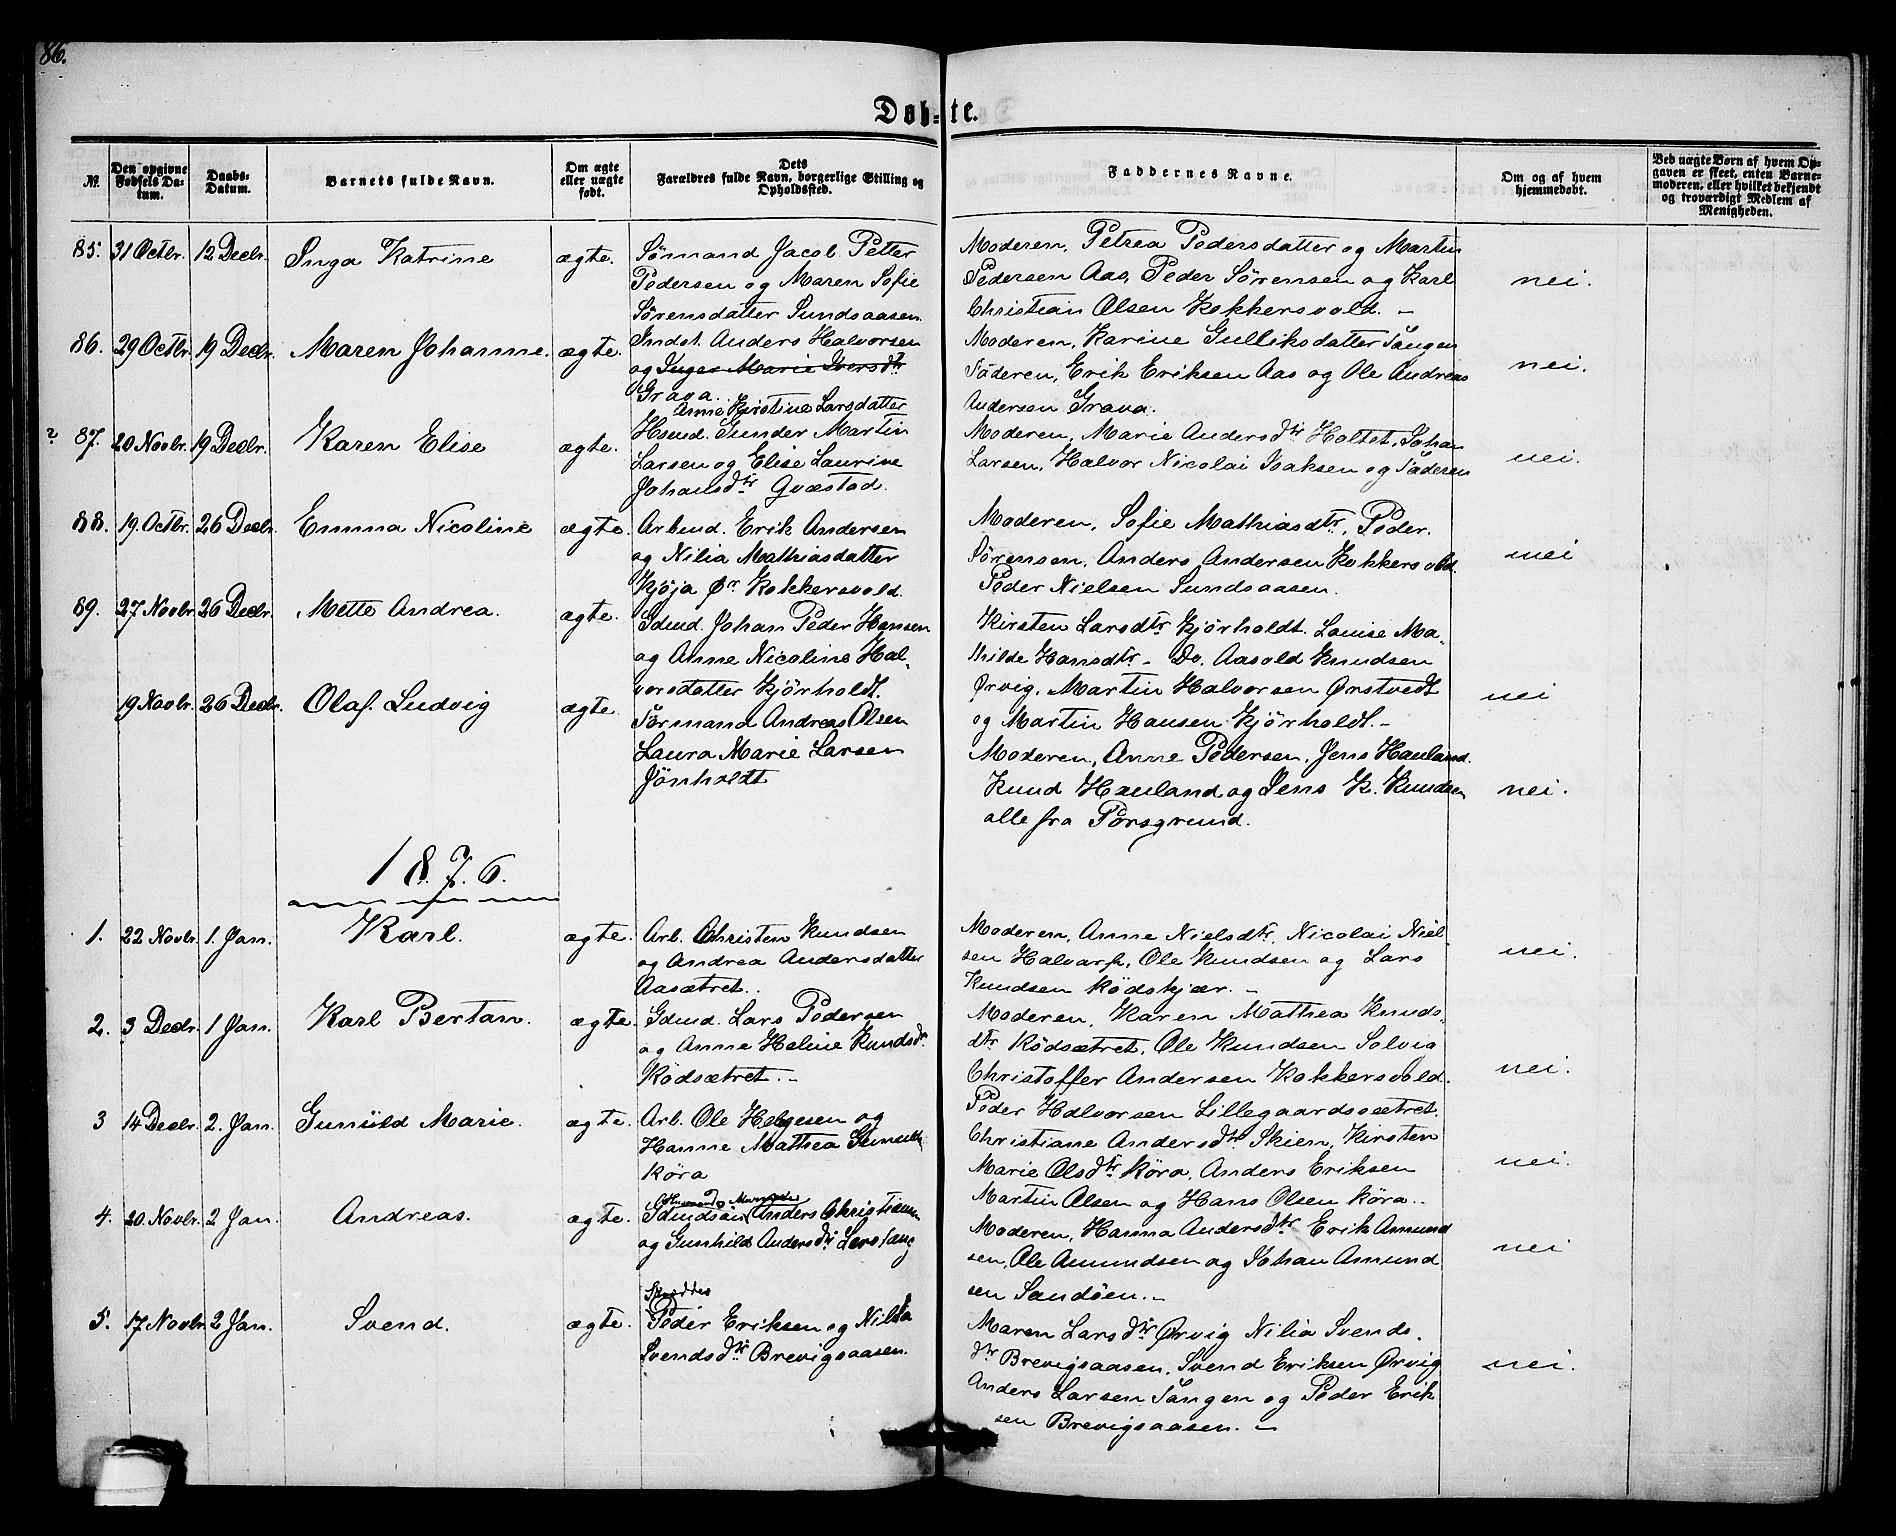 86.
Døb-te.
№.
Den opgivne Fødsels Datum.
Daabs-Datum.
Barnets fulde Navn.
Om ægte eller uægte født.
Dets Forældres fulde Navn, borgerlige Stilling og Opholdssted.
Faddernes Navne.
Om og af hvem hjemmedøbt.
Ved uægte Børn af hvem Opgaven er skeet, enten Barnemoderen, eller hvilket bekjendt og troværdigt Medlem af Menigheden.
85. 31 Octbr. 12 Decbr. Inga Katrine ægte.
Sømand Jacob Petter
Pedersen og Maren Sofie
Sørensdatter Sundsaasen.
Moderen, Petrea Pedersdatter og Martin
Pedersen Aas, Peder Sørensen og Karl
Christian Olsen Kokkersvold. -
nei.
86. 29 Octbr. 19 Decbr. Maren Johanne. ægte.
Indst. Anders Halvorsen
og Inger Marie Iversdtr
Grava.
Anne Kirstine Larsdatter
Moderen, Karine Gulliksdatter Tangen
Faderen, Erik Eriksen Aas og Ole Andreas
Andersen Grava.
nei.
? 87. 20 Novbr. 19 Decbr. Karen Elise ægte.
Hsmd. Gunder Martin
Larsen og Elise Laurine
Johansdtr Qvæstad.
Moderen, Marie Andersdtr Holtet, Johan
Larsen, Halvor Nicolai Isaksen og Faderen
nei.
88. 19. Octbr. 26 Decbr. Emma Nicoline ægte.
Arbmd. Erik Andersen
og Nilia Mathiasdatter
Kjøja Ør Kokkersvold.
Moderen, Sofie Mathiasdtr, Peder
Sørensen, Anders Andersen Kokkersvold.
Peder Nielsen Sundsaasen.
nei
89. 27 Novbr 26 Decbr. Mette Andrea. ægte.
Gdmd. Johan Peder Hansen
og Anne Nicoline Hal-
vorsdatter Kjørholdt.
Kirsten Larsdtr Kjørholdt. Louise Ma-
thilde Hansdtr - Do. Aasold Knudsen
Ørvig, Martin Halvorsen Ørstvedt
og Martin Hansen Kjørholdt. -
nei
19 Novbr. 26 Decbr. Olaf Ludvig ægte.
Sørmand Andreas Olsen
Laura Marie Larsen
Jønholdt
Moderen, Anne Pedersen, Jens Hauland.
Knud Hauland og Jens K. Knudsen
alle fra Porsgrund.
nei.
1876.
1. 22 Novbr. 1. Jan. Karl. ægte.
Arb. Christen Knudsen
og Andrea Andersdatter
Aasætret..
Moderen, Anne Nielsdtr, Nicolai Niel-
sen Halvarp, Ole Knudsen og Lars
Knudsen Rødskjær. -
nei.
2. 3 Decbr. 1 Jan. Karl Bertan. ægte.
Gdmd. Lars Pedersen
og Anne Heline Knudsdr.
Rødsætret. -
Moderen, Karen Mathea Knuds-
dtr Rødsætret, Ole Knudsen Solvig
Christoffer Andersen Kokkersvold.
nei.
3 14 Decbr. 2. Jan. Gunild Marie. ægte.
Arb. Ole Helgesen og
Hanne Mathea
Røra
Peder Halvorsen Lillegaardsætret.
Christiane Andersdtr Skien, Kirsten
Marie Olsdtr Røra, Anders Eriksen
Martin Olsen og Hans Olsen Røra..
nei.
4. 20 Novbr. 2 Jan. Andreas. ægte.
Anders Christian
og Gunhild Andersdtr
Moderen, Hanna Andersdtr Erik Amund
sen, Ole Amundsen og Johan Amund
sen Sandøen. -
nei
5. 17 Novbr. 2 Jan. Svend. ægte.
Skrædder
Peder Eriksen og Nilia
Svendsdtr Brevigsaasen.
Maren Larsdtr Ørvig Nilia Svends-
dtr Brevigsaasen, Svend Eriksen Ørvig
Anders Larsen Tangen og Peder Erik
sen Brevigsaasen. -
nei.